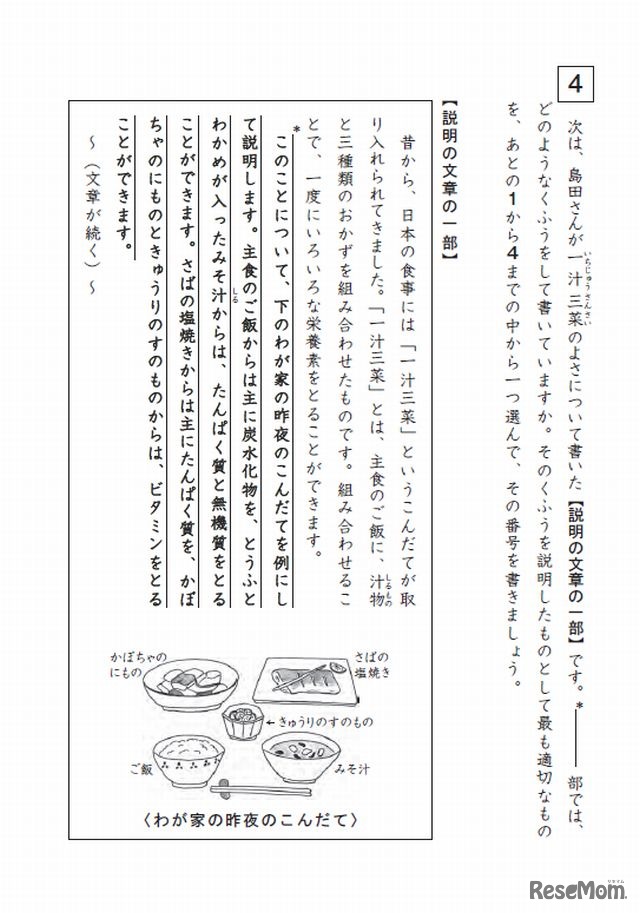 4
次は、島田さんが一汁三菜のよさについて書いた【説明の文章の一部】です。*―― 部では、
いちじゅうさんさい
どのようなくふうをして書いていますか。そのくふうを説明したものとして最も適切なもの
を、あとの1から4までの中から一つ選んで、その番号を書きましょう。
【説明の文章の一部】
昔から、日本の食事には「一汁三菜」というこんだてが取
り入れられてきました。「一汁三菜」とは、主食のご飯に、汁物
しるもの
と三種類のおかずを組み合わせたものです。組み合わせるこ
とで、一度にいろいろな栄養素をとることができます。
*このことについて、下のわが家の昨夜のこんだてを例にし
て説明します。主食のご飯からは主に炭水化物を、とうふと
わかめが入ったみそ汁からは、たんぱく質と無機質をとる
しる
ことができます。さばの塩焼きからは主にたんぱく質を、かぼ
ちゃのにものときゅうりのすのものからは、ビタミンをとる
ことができます。
～（文章が続く）～
さばの
塩焼き
かぼちゃの
にもの
←きゅうりのすのもの
ご飯
みそ汁
〈わが家の昨夜のこんだて〉
リセマム
ReseMom.